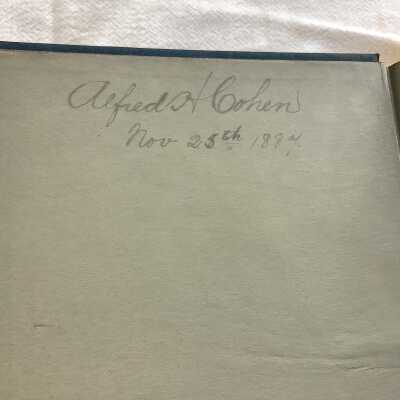 Alfred H Cohen
Nov 25th 1897